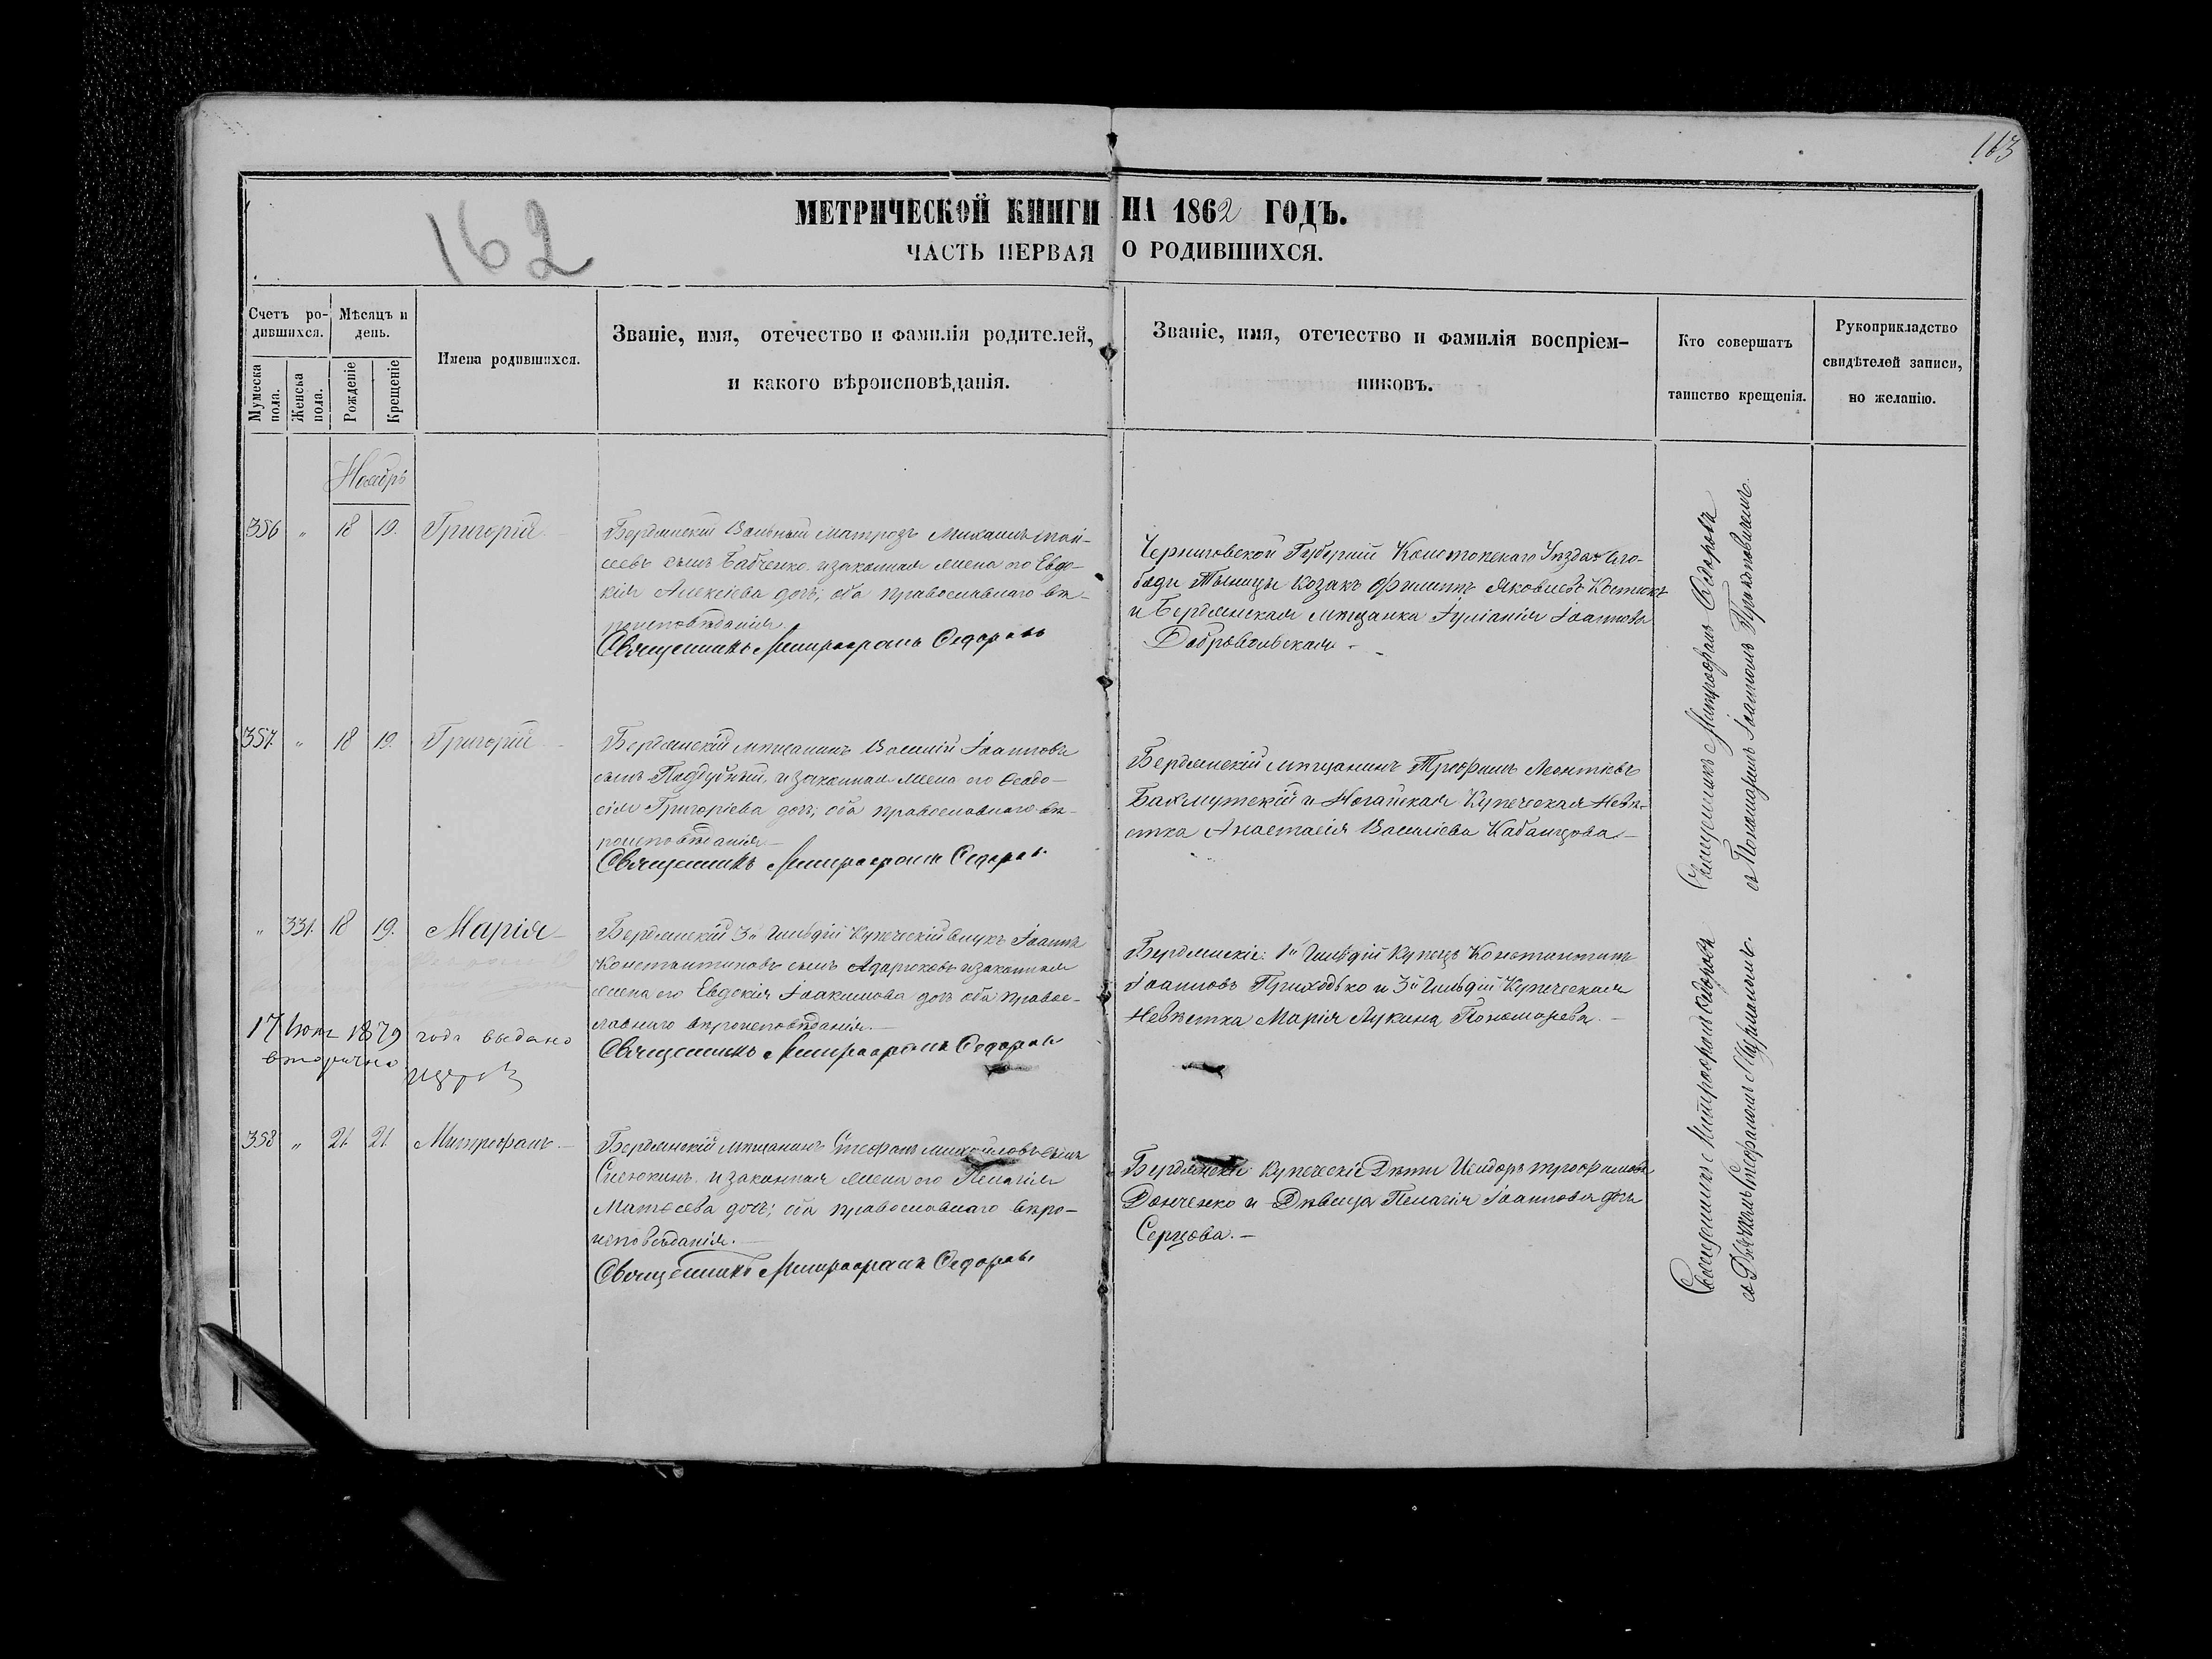 163
162
МЕТРИЧЕСКОЙ КНИГИ НА 1862 ГОДЪ.
ЧАСТЬ ПЕРВАЯ О РОДИВШИХСЯ.
Счетъ ро-
дившихся.
Мужеска пола.
Женска пола.
Мѣсяцъ и
день.
Рожденіе
Крещеніе
Имена родившихся.
Званіе, имя, отечество и фамилія родителей,
и какого вѣроисповѣданія.
Званіе, имя, отечество и фамилія воспріем-
никовъ.
Кто совершатъ
таинство крещенія.
Рукоприкладство
свидѣтелей записи,
по желанію.
Ноябрь
356 „ 18 19. Григорій
Бердянскій Вольный матрозъ Михаилъ Мои-
сеевъ сынъ Бабченко и законная жена его Евдо-
кія Алексіева дочь; оба православнаго вѣ-
роисповѣданія
Священникъ Митрофанъ Федоровъ
Черниговской Губерніи Конотопскаго Уѣзда Сло-
боды Тыницы козакъ Филиппъ Яковлевъ Костюкъ
и Бердянская мѣщанка Іуліанія Іоаннова
Добровольская
357. „ 18 19. Григорій
Бердянскій мѣщанинъ Василій Іоанновъ
сынъ Поддубный, и законная жена его Ѳеодо-
сія Григоріева дочь; оба православнаго вѣ-
роисповѣданія
Священникъ Митрофанъ Федоровъ
Бердянскій мѣщанинъ Трофимъ Леонтіевъ
Бахмутскій и Ногайская Купеческая Невѣ-
стка Анастасія Василіева Кабанцова
„ 331. 18 19. Марія
Бердянскій 3й Гильдіи Купеческій внукъ Іоаннъ
Константиновъ сынъ и законная
жена его Евдокія Іоакимова дочь оба правос-
лавнаго вѣроисповѣданія.
Священникъ Митрофанъ Федоровъ
Бердянскіе: 1й Гильдіи Купецъ Константинъ
Іоанновъ Приходько и 3й Гильдіи Купеческая
Невѣстка Марія Лукина Пономарева.
17 1879 года выдано
вторично
358 „ 21. 21. Митрофанъ.
Бердянскій мѣщанинъ Стефанъ Михайловъ сынъ
и законная жена его Пелагія
Матѳеева дочь; оба православнаго вѣро-
исповѣданія.
Священникъ Митрофанъ Федоровъ
Бердянскіе: купеческіе Дѣти Исидоръ Трофимовъ
Донченко и Дѣвица Пелагія Іоаннова дочь
Серцова.
Священникъ Митрофанъ Федоровъ
съ Пономаремъ Іоанномъ Прокоповичемъ.
Священникъ Митрофанъ Федоровъ
съ Дьячкомъ Стефаномъ